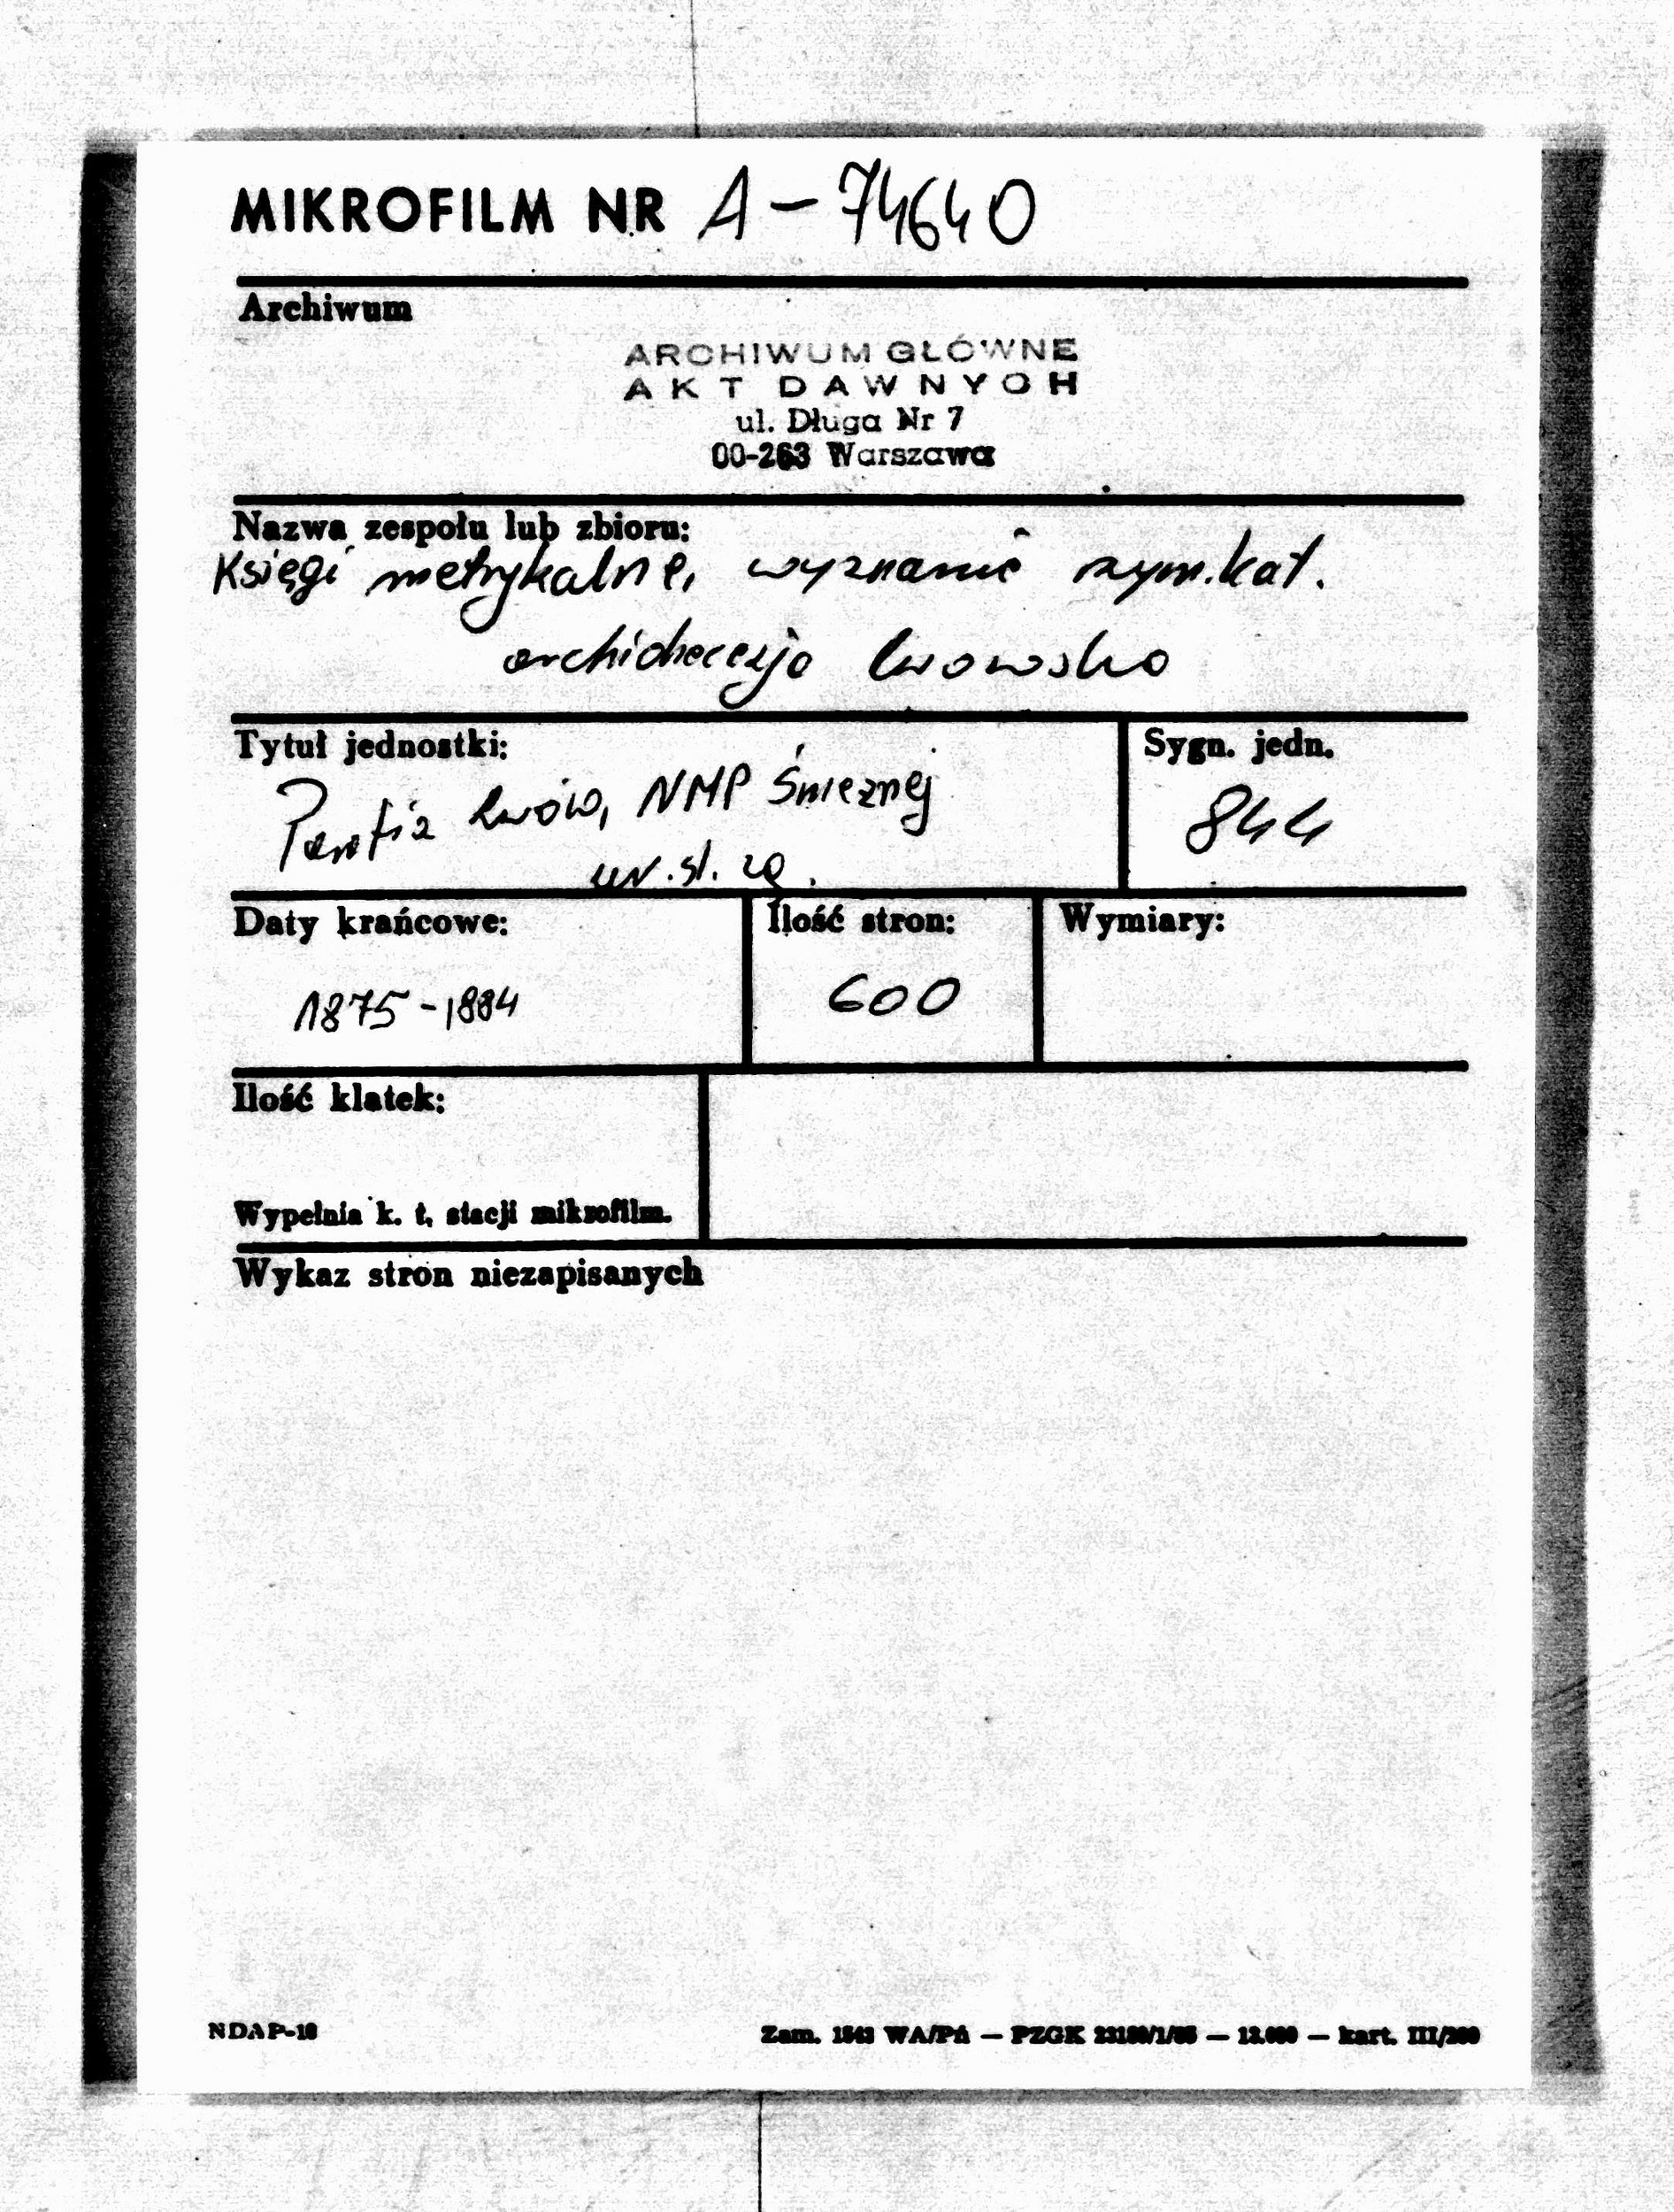 MIKROFILM NR A-74640
Archiwum
ARCHIWUM GŁÓWNE
AKT DAWNYCH
ul. Długa Nr 7
00-263 Warszawa
Nazwa zespołu lub zbioru:
Księgi metrykalne, wyznanie rzym.kat.
archidiecezja lwowska
Tytuł jednostki:
Sygn. jedn.
Parafia Lwów, NMP Śnieżnej
844
ur. śl. zg.
Daty krańcowe:
Ilość stron:
Wymiary:
1875-1884
600
Ilość klatek:
Wypełnia k. t. stacji mikrofilm.
Wykaz stron niezapisanych
NDAP-18
Zam. 1543 WA/Pń — PZGK — kart.